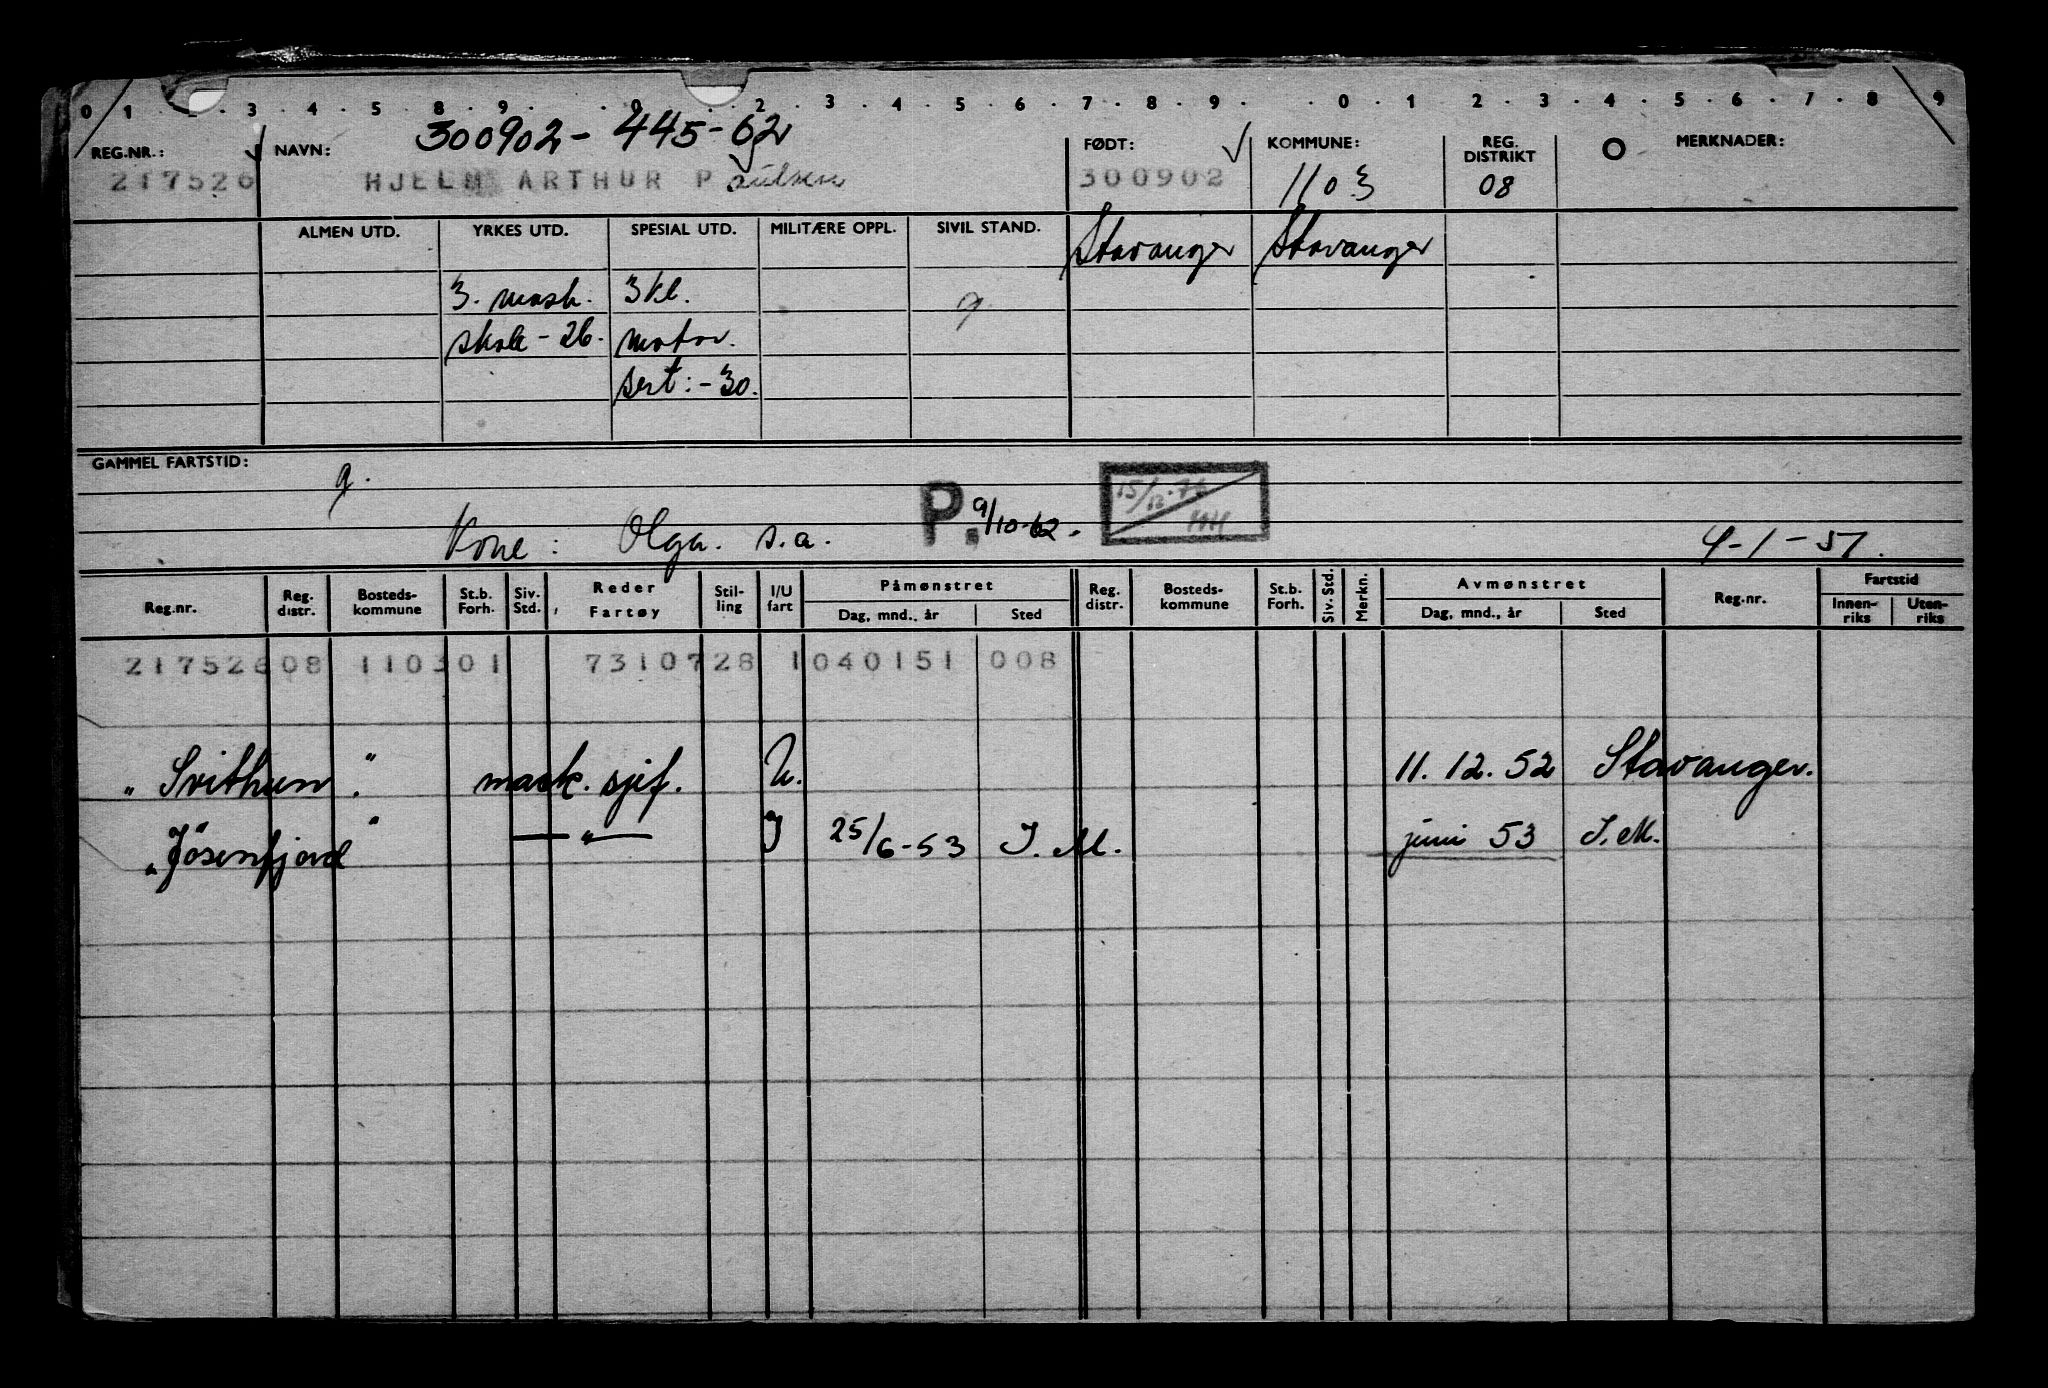 0 1 2 3 4 5 8 9 0 2 3 4 5 6 7 8 9 0 1 2 3 4 5 6 7 8 9
300902 - 445 - 62
REG.NR.: NAVN: FØDT: KOMMUNE: REG. DISTRIKT O MERKNADER:
217526 HJELM ARTHUR Paulsen 300902 1103 08
ALMEN UTD. YRKES UTD. SPESIAL UTD. MILITÆRE OPPL. SIVIL STAND. Stavanger Stavanger
3. mask. 3 kl. g
skole - 26. motor.
sert: - 30.
GAMMEL FARTSTID: g.
Kone: Olga. s.a. P. 9/10-62. 15/12.76 4-1-51.
Reg.nr. Reg. distr. Bosteds- kommune St.b. Forh. Siv. Std. Reder Fartøy Stil- ling I/U fart Påmønstret Reg. distr. Bosteds- kommune St.b. Forh. Siv. Std. Merkn. Avmønstret Reg.nr. Fartstid
Dag, mnd., år Sted Dag, mnd., år Sted Innen- riks Uten- riks
217526 08 110301 7310728 1 040151 008
" Svithun " mask. sjef. U. 11. 12. 52 Stavanger.
" Jøsenfjord " — " — I 25/6-53 I. M. juni 53 I. M.